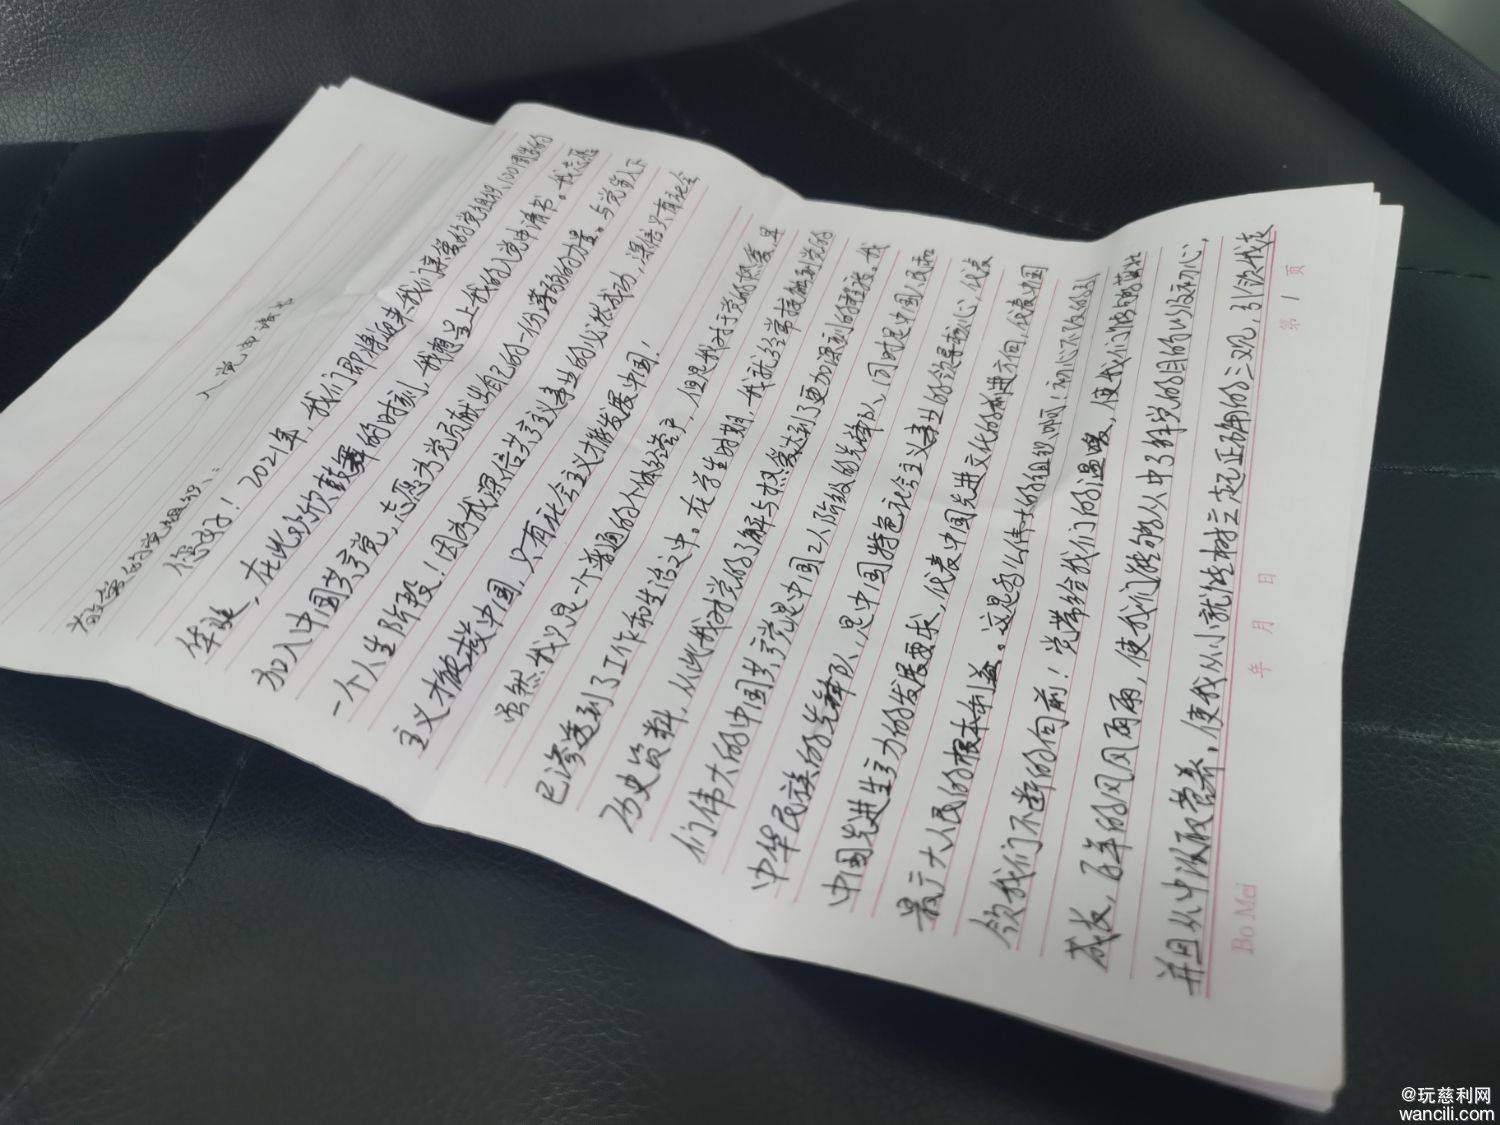 入党申请书
敬爱的党组织：
您好！2021年，我们即将迎来我们亲爱的党组织100周年的
华诞，在此欢欣鼓舞的时刻，我想呈上我的入党申请书。我志愿
加入中国共产党，志愿为党贡献出自己的一份薄弱的力量。与党步入下
一个人生阶段！因为我深信共产主义事业的必然成功，深信只有社会
主义才能救中国，只有社会主义才能发展中国！
虽然我只是一个普通的个体经营户，但是我对于党的热爱早
已渗透到了工作和生活之中。在学生时期，我就经常接触到党的
历史资料，从此我对党的了解与热爱达到了更加深刻的程度。我
们伟大的中国共产党是中国工人阶级的先锋队，同时是中国人民和
中华民族的先锋队，是中国特色社会主义事业的领导核心，代表
中国先进生产力的发展要求，代表中国先进文化的前进方向，代表中国
最广大人民的根本利益。这是多么伟大的组织啊！初心不改的引
领我们不断的向前！党带给我们的温暖，使我们能够茁壮
成长，百年的风风雨雨，使我们能够从中了解党的目的以及初心，
并且从中汲取营养，使我从小就能树立起正确的三观，引领我走
Bo Mei
年 月 日
第 1 页
@玩慈利网
wancili.com